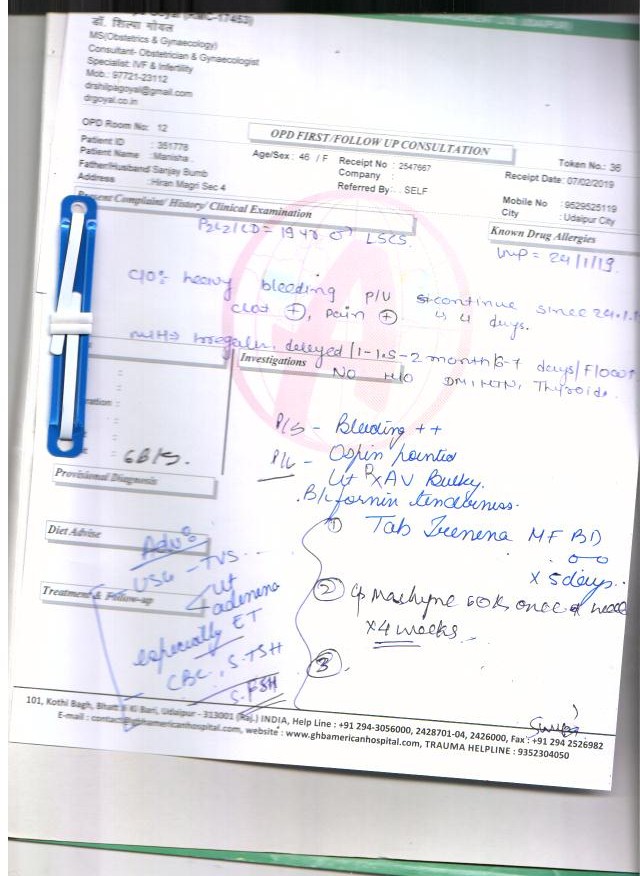 (RMC-17453)
डॉ. शिल्पा गोयल
MS(Obstetrics & Gynaecology)
Consultant- Obstetrician & Gynaecologist
Specialist: IVF & Infertility
Mob.: 97721-23112
drshilpagoyal@gmail.com
drgoyal.co.in
OPD Room No: 12
OPD FIRST/FOLLOW UP CONSULTATION
Token No.: 36
Patient ID : 351778
Age/Sex : 46 / F
Receipt No : 2547667
Receipt Date: 07/02/2019
Patient Name : Manisha
Company :
Father/Husband Sanjay Bumb
Referred By : SELF
Mobile No : 9529525119
Address : Hiran Magri Sec 4
City : Udaipur City
Present Complaint/ History/ Clinical Examination
Known Drug Allergies
P2L2/LD = 19 yr LSCS.
LMP = 24/1/19.
C/O: heavy bleeding P/V continue since
clot +, Pain + days.
irregular, delayed / 1-1.5-2 month/6-7 days/
Investigations
NO H/O DM, HTN, Thyroid.
P/S - Bleeding ++
68
P/V -
Ut AV Bulky.
tenderness.
Provisional Diagnosis
Rx
① Tab MF BD
x 5 days.
Diet Advise
Adv:
USG - TVS
Ut
Treatment & Follow-up
especially ET
CBC, S.TSH
S.FSH
② 60K once a week
x 4 weeks
③
101, Kothi Bagh, Bhatt Ji Ki Bari, Udaipur - 313001 (Raj.) INDIA, Help Line : +91 294-3056000, 2428701-04, 2426000, Fax : +91 294 2526982
E-mail : contact@gbhamericanhospital.com, website : www.gbhamericanhospital.com, TRAUMA HELPLINE : 9352304050